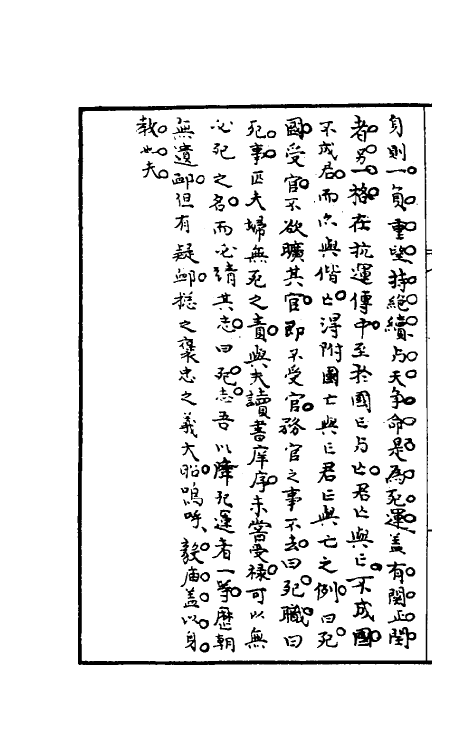 身則一負重堅持絕續与天争命是為死運盖有関正閏
者另一格在抗運傳中至扵國亡与亡君亡與亡不成國
不成君而亦與偕亡得附國亡與亡君亡與亡之例曰死
國受官不欲曠其官即不受官務官之事不去曰死職曰
死事匹夫婦無死之責與夫讀書庠序未嘗受祿可以無
必死之名而必靖其志曰死志吾以降死運者一等歷朝
無遺卹但有疑卹揔之襃忠之義大昭嗚呼毅庙盖以身
教也夫